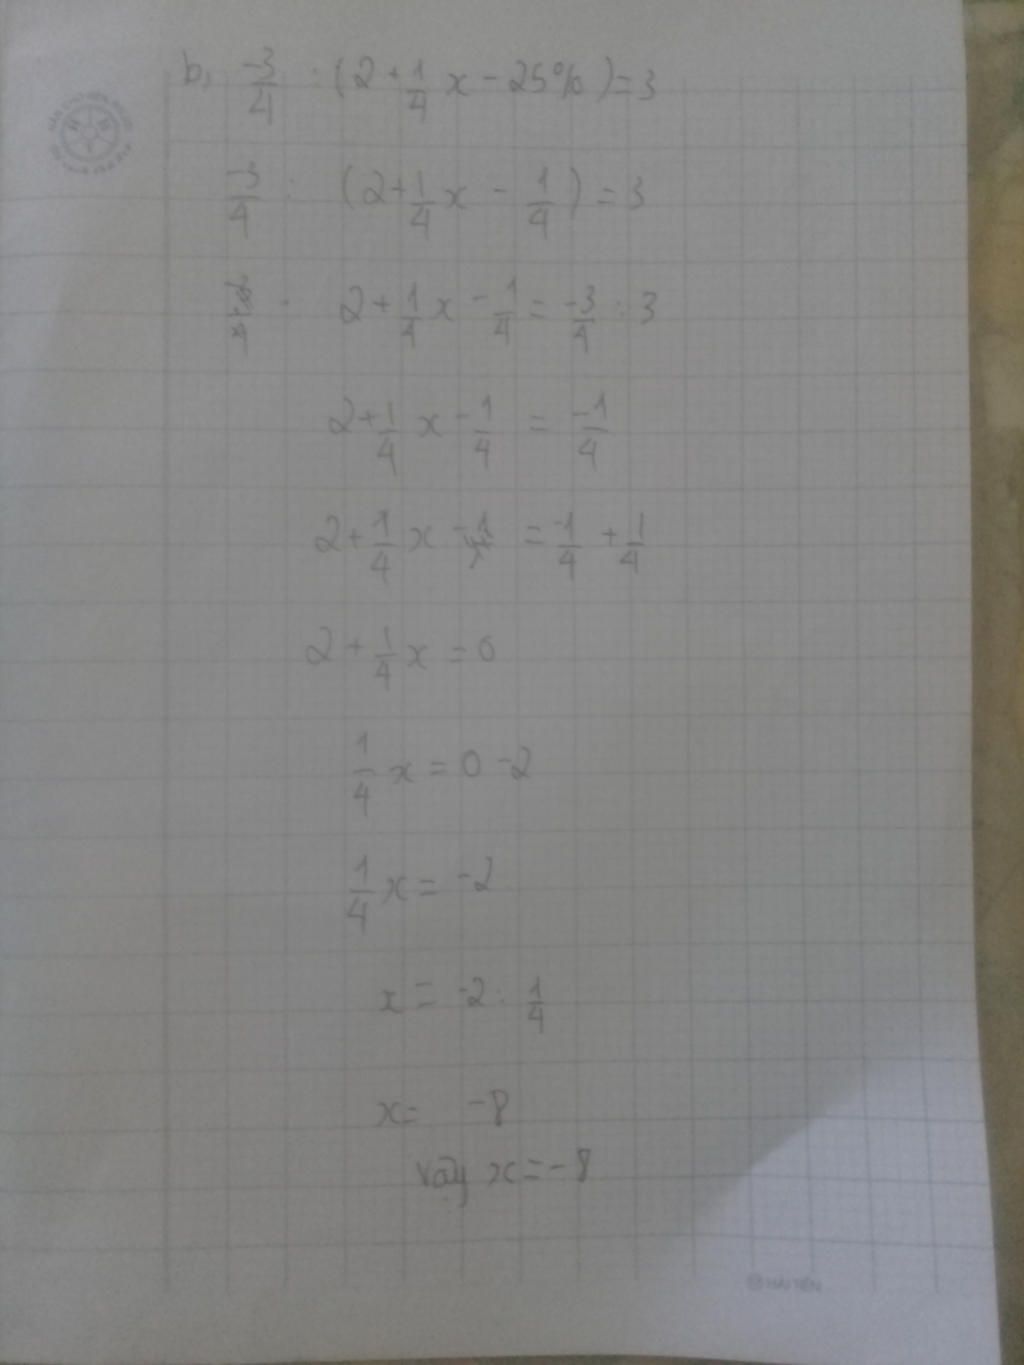 b, -3/4 : (2 + 1/4 x - 25%) = 3
-3/4 : (2 + 1/4 x - 1/4) = 3
2 + 1/4 x - 1/4 = -3/4 : 3
2 + 1/4 x - 1/4 = -1/4
2 + 1/4 x = -1/4 + 1/4
2 + 1/4 x = 0
1/4 x = 0 - 2
1/4 x = -2
x = -2 : 1/4
x = -8
vậy x = -8
HẢI TIẾN